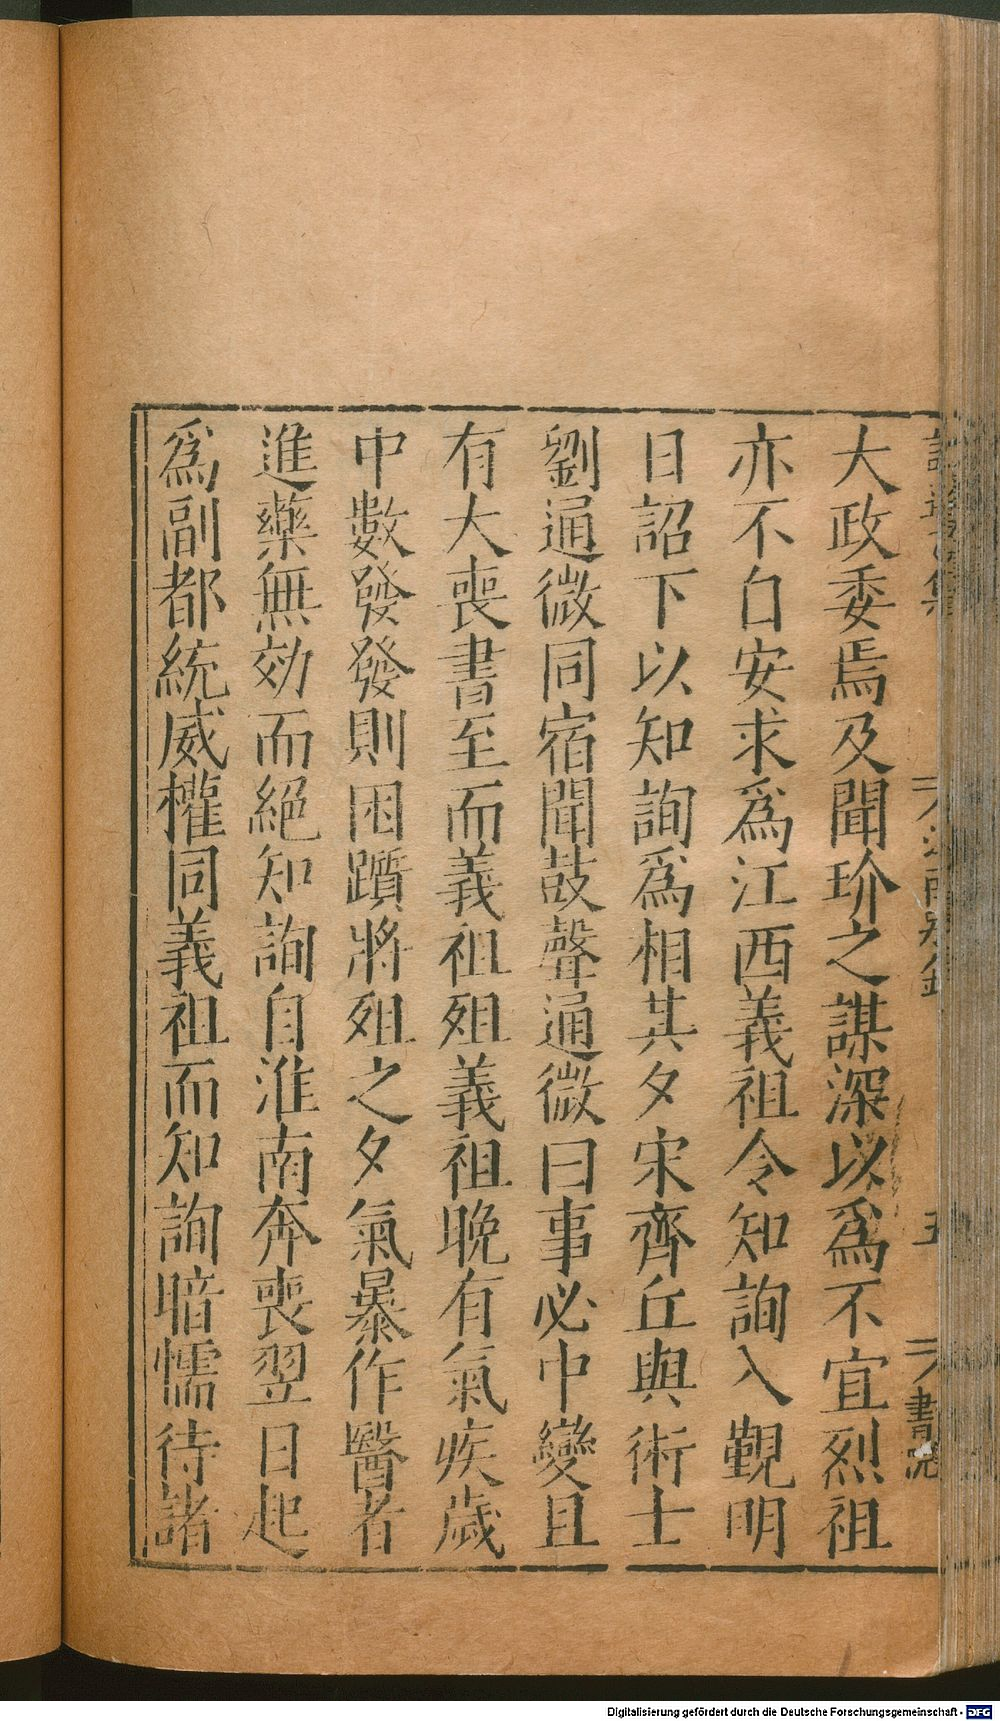 大政委焉及聞玠之謀深以爲不宜烈祖
亦不白安求爲江西義祖令知詢入覲明
日詔下以知詢爲相其夕宋齊丘與術士
劉通微同宿聞鼓聲通微曰事必中變且
有大喪書至而義祖殂義祖晚有氣疾歲
中數發發則困躓將殂之夕氣暴作醫者
進藥無効而絕知詢自淮南奔喪翌日起
爲副都統威權同義祖而知詢暗懦待諸
五
Digitalisierung gefördert durch die Deutsche Forschungsgemeinschaft - DFG